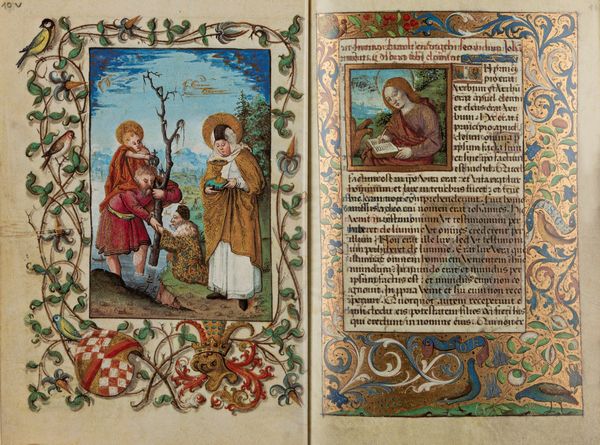 10 v
N princi
pio erat
verbum et verbu
erat apud deum
et deus erat ver
bum hoc erat
principio apud
deum omnia p
ipsum facta sun
et sine ipso factu
est nichil Quod
factum est in ipso vita erat et vita erat lux
hominum et lux in tenebris lucet et tene
bre eam non comprehenderunt Fuit homo
missus a deo cui nomen erat iohannes Hic
venit in testimonium vt testimonium per
hiberet de lumine vt omnes crederent per
illum Non erat ille lux sed vt testimonium
perhiberet de lumine Erat lux vera que
illuminat omnem hominem venientem in
mundum In mundo erat et mundus per
ipsum factus est et mundus eum non co
gnouit In propria venit et sui eum non rece
perunt Quotquot autem receperunt eum
dedit eis potestatem filios dei fieri his
qui credunt in nomine eius Qui non ex